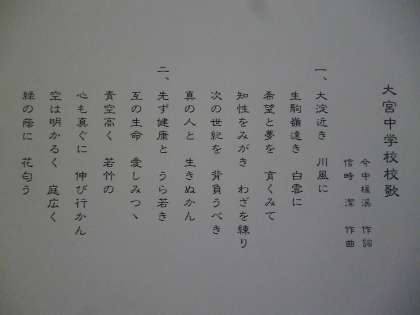 大宮中学校校歌
今中楓溪 作詞
信時 潔 作曲
一、大淀近き 川風に
生駒嶺遠き 白雲に
希望と夢を 育くみて
知性をみがき わざを練り
次の世紀を 背負うべき
真の人と 生きぬかん
二、先ず健康と うら若き
互の生命 愛しみつゝ
青空高く 若竹の
心も真ぐに 伸び行かん
空は明かるく 庭広く
緑の蔭に 花匂う